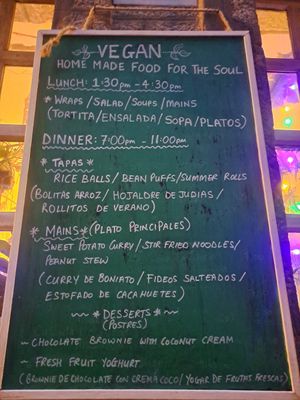 VEGAN
HOME MADE FOOD FOR THE SOUL
LUNCH: 1:30pm - 4:30pm
* WRAPS / SALAD / SOUPS / MAINS
(TORTITA / ENSALADA / SOPA / PLATOS)
DINNER: 7:00pm - 11:00pm
* TAPAS *
RICE BALLS / BEAN PUFFS / SUMMER ROLLS
(BOLITAS ARROZ / HOJALDRE DE JUDIAS /
ROLLITOS DE VERANO)
* MAINS * (PLATO PRINCIPALES)
SWEET POTATO CURRY / STIR FRIED NOODLES /
PEANUT STEW
(CURRY DE BONIATO / FIDEOS SALTEADOS /
ESTOFADO DE CACAHUETES)
~ * DESSERTS * ~
(POSTRES)
~ CHOCOLATE BROWNIE WITH COCONUT CREAM
~ FRESH FRUIT YOGHURT
(BROWNIE DE CHOCOLATE CON CREMA COCO / YOGAR DE FRUTAS FRESCAS)